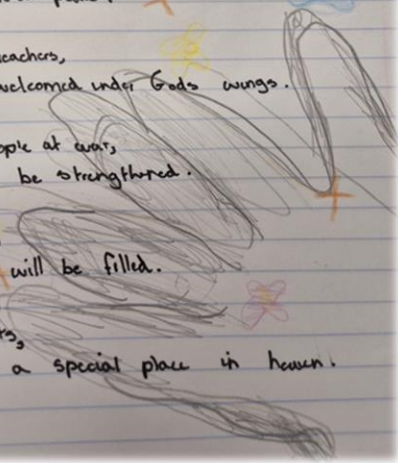 eachers,
welcomed under Gods wings.
ople at war,
be strengthened.
will be filled.
rs,
a special place in heaven.